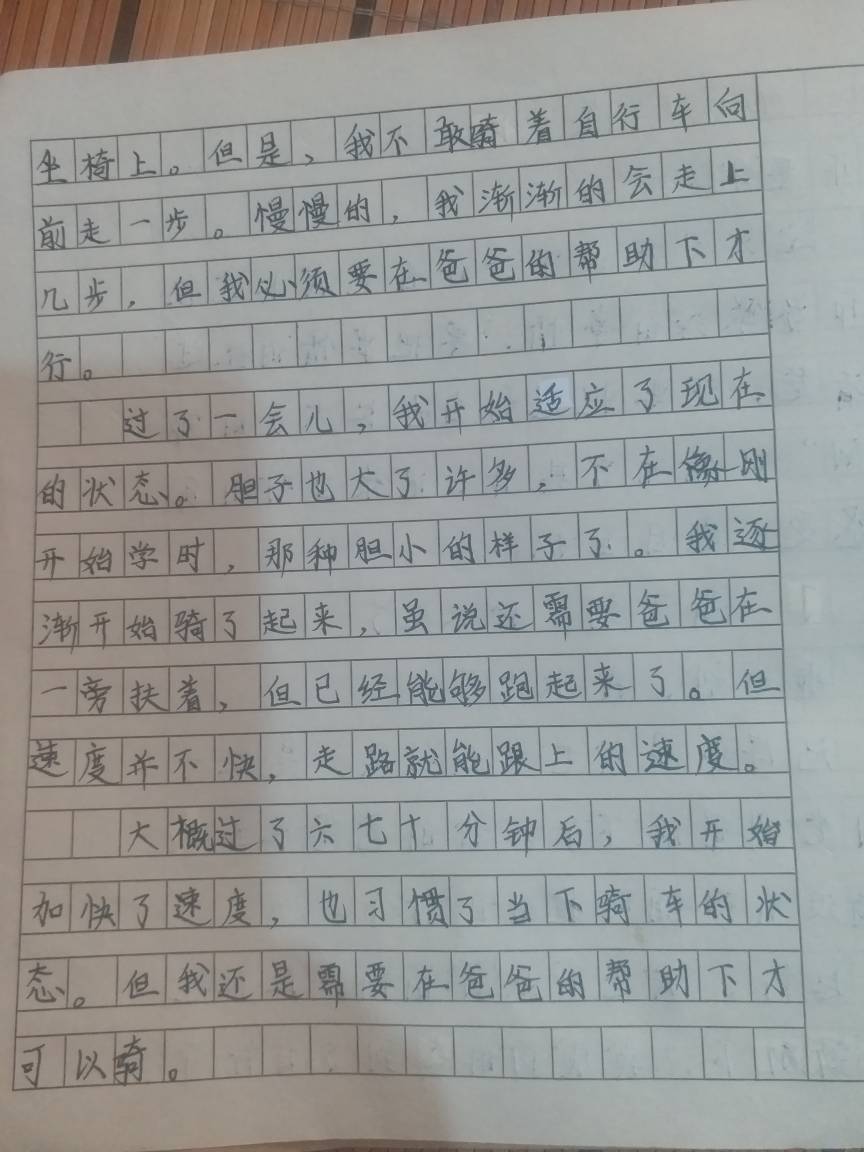 坐椅上。但是、我不敢骑着自行车向
前走一步。慢慢的，我渐渐的会走上
几步，但我必须要在爸爸的帮助下才
行。
过了一会儿，我开始适应了现在
的状态。胆子也大了许多，不在像刚
开始学时，那种胆小的样子了。我逐
渐开始骑了起来，虽说还需要爸爸在
一旁扶着，但已经能够跑起来了。但
速度并不快，走路就能跟上的速度。
大概过了六七十分钟后，我开始
加快了速度，也习惯了当下骑车的状
态。但我还是需要在爸爸的帮助下才
可以骑。